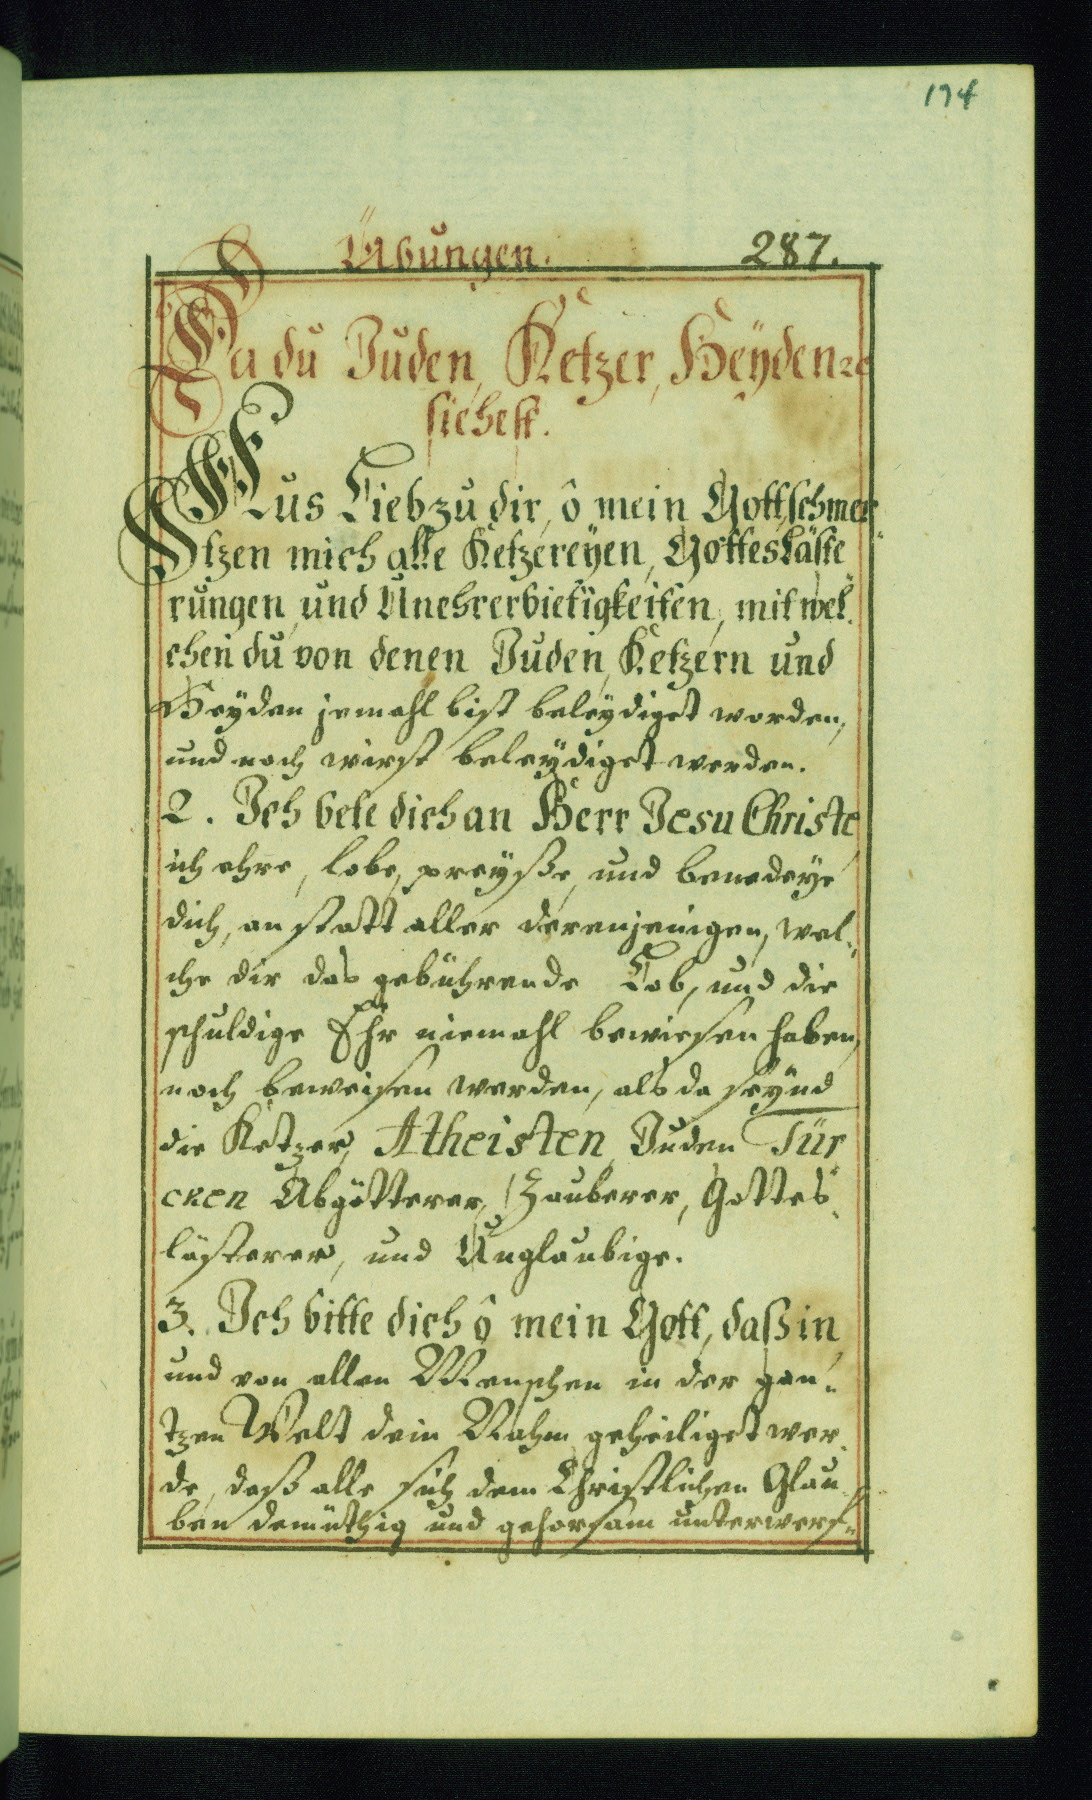 174
Übungen. 287.
Da du Juden, Ketzer, Heÿden ꝛc
siehest.
Aus Lieb zu dir, ô mein Gott, schmer
tzen mich alle Ketzereÿen, Gottesläste
rungen, und Unehrerbietigkeiten, mit wel
chen du von denen Juden, Ketzern und
Heyden jemahl bist beleydiget worden,
und noch wirst beleÿdiget werden.
2. Ich bete dich an Herr Jesu Christe
ich ehre, lobe, preÿße, und benedeye
dich, an statt aller derenjenigen, wel-
che dir das gebührende Lob, und die
schuldige Ehr niemahl bewiesen haben,
noch beweisen werden, als da seÿnd
die Ketzer, Atheisten, Juden Tür
cken Abgötterer, Zauberer, Gottes
lästerer, und Unglaubige.
3. Ich bitte dich ô mein Gott, daß in,
und von allen Menschen in der gan-
tzen Welt dein Nahm geheiliget wer
de, daß alle sich dem Christlichen Glau
ben demüthig und gehorsam unterwerf-